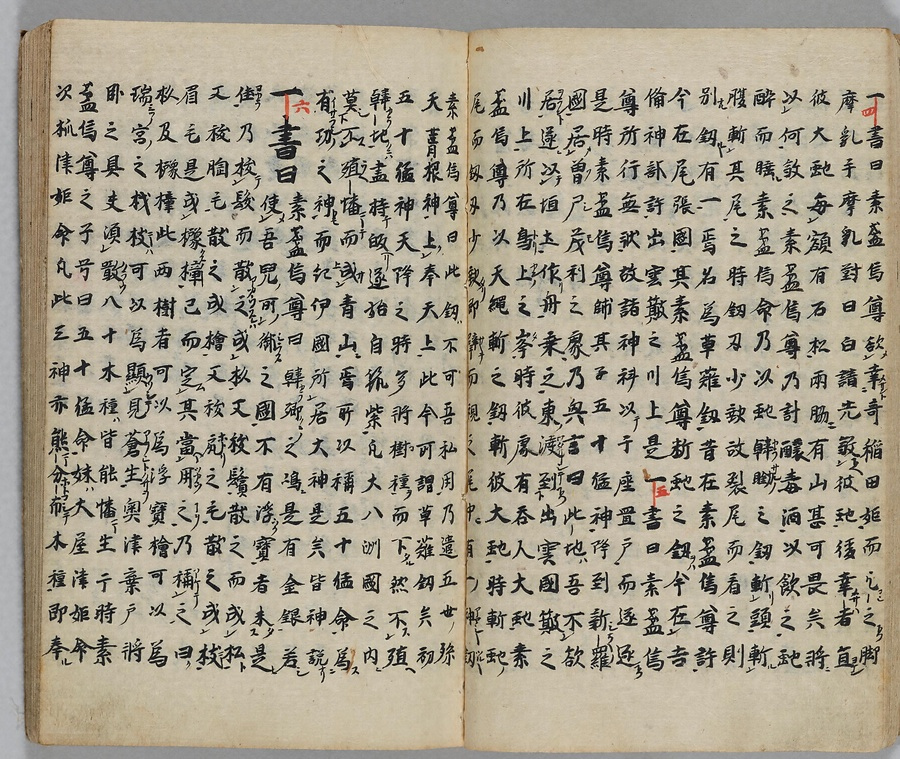 一四書曰素盞嗚尊欲幸奇稲田姫而乞之脚
摩乳手摩乳對曰白請先殺彼虵後幸者宜
彼大虵毎頭有石松兩脇有山甚可畏矣將
以何殺之素盞嗚尊乃計釀毒酒以飲之虵
醉而睡素盞嗚命乃以虵韓鋤之釼斬頭斬
腹斬其尾之時釼刃少缺故裂尾而看之則
別釼有一焉名為草薙釼昔在素盞嗚尊許
今在尾張國其素盞嗚尊斬虵之釼今在吉
備神部許出雲簸之川上是一五書曰素盞嗚
尊所行無状故諸神科以千座置戸而遂逐
是時素盞嗚尊帥其子五十猛神降到新羅
國居曽尸茂利之處乃興言曰此地吾不欲
居遂以垣土作舟乗之東渡到出雲國簸之
川上所在鳥上之峯時彼處有吞人大虵素
盞嗚尊乃以天蠅斬之釼斬彼大虵時斬虵
尾而釼刃少缺即擘而視之尾中有一神釼
素盞嗚尊曰此釼不可吾私用乃遣五世孫
天葺根神上奉天上此今所謂草薙釼矣初
五十猛神天降之時多將樹種而下然不殖
韓地盡持皈遂始自筑紫凡大八洲國之内
莫不殖播而成青山焉所以稱五十猛命為
有功之神而紀伊國所居大神是矣皆神説
一六書曰素盞嗚尊曰韓郷之嶋是有金銀若
使吾兒所御之國不有浮寶者未是
佳乃抜鬚而散之成杉又抜鬢散之而成私
又抜胸毛散之成檜又抜尻之毛散之成柀
眉毛是成櫲樟已而定其當用之乃稱之曰
杉及櫲樟此兩樹者可以為浮寶檜可以為
瑞宮之材柀可以為顯見蒼生奥津棄戸將
卧之具夫須噉八十木種皆能播生于時素
盞嗚尊之子号曰五十猛命妹大屋津姫命
次抓津姫命凡此三神亦能分布木種即奉